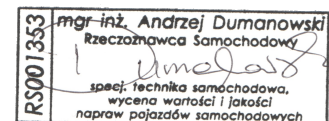 RS001353
mgr inż. Andrzej Dumanowski
Rzeczoznawca Samochodowy
specj. technika samochodowa,
wycena wartości i jakości
napraw pojazdów samochodowych